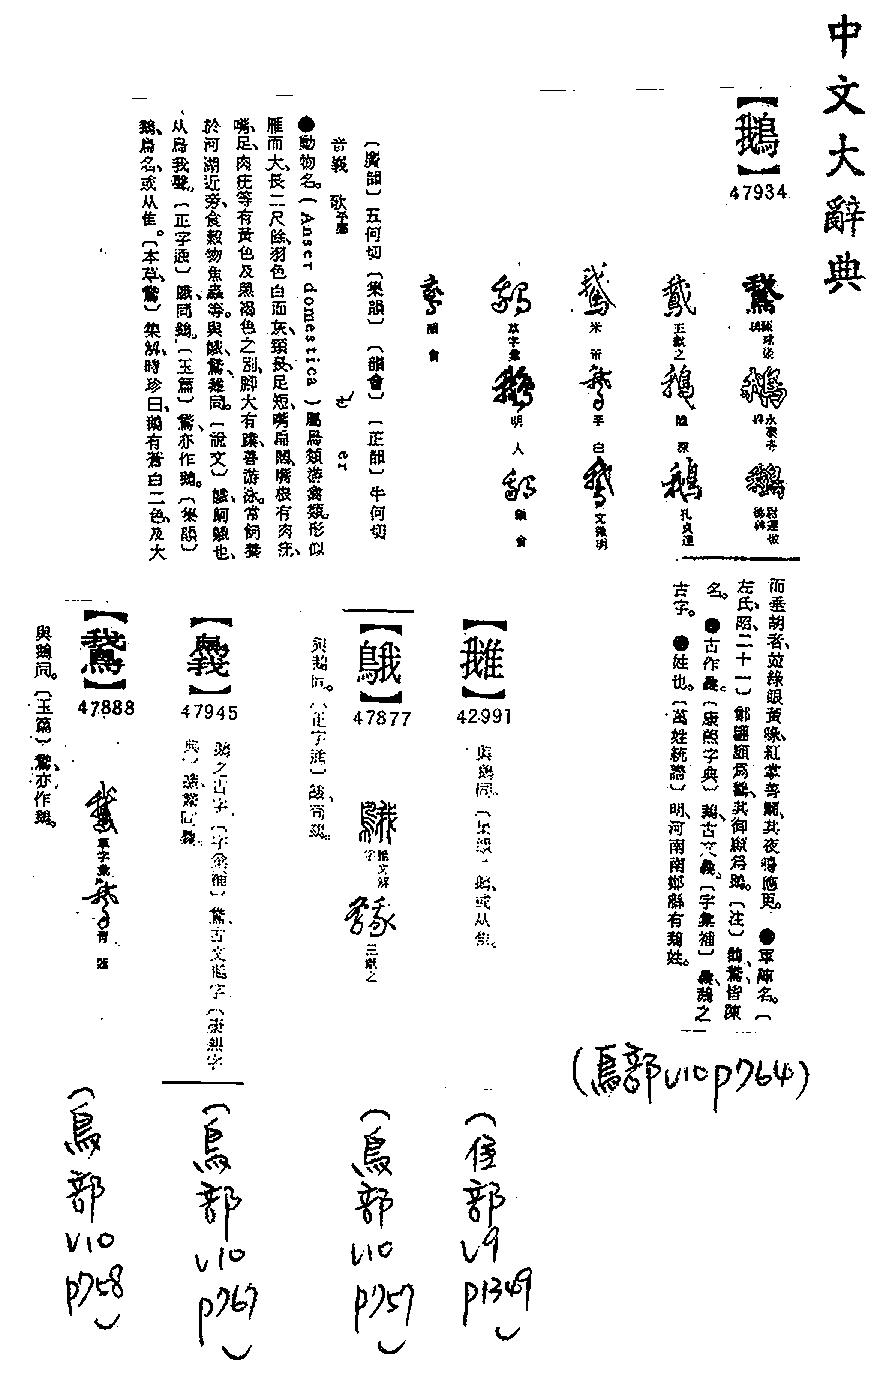 中文大辭典
【鵝】
47934
王獻之
米芾
文徵明
草字彙
明人
韻會
〔廣韻〕五何切〔集韻〕〔韻會〕〔正韻〕牛何切
音義
er
●動物名。(Anser domestica)屬鳥類游禽類。形似
雁而大、長二尺餘、羽色白而灰、頸長、足短、嘴扁闊、嘴根有肉疣、
嘴、足、肉疣等有黃色及黑褐色之別、腳大有蹼善游泳。常飼養
於河湖近旁、食穀物魚蟲等。與䳘䳗雞同。〔說文〕䳘、䴥䳘也、
从鳥我聲。〔正字通〕䳘同鵝。〔玉篇〕䳗亦作鵝。〔集韻〕
鵝、鳥名、或从隹。〔本草、鵝〕集解、時珍曰、鵝有蒼白二色、及大
而垂胡者、並綠眼黃喙、紅掌善鬭、其夜鳴應更。●軍陣名。〔
左氏、昭二十一〕鄭翩願為鸛、其御願為鵝。〔注〕鸛鵝皆陳
名。●古作䳗。〔康熙字典〕鵝、古文䳗。〔字彙補〕䳗、鵝之
古字。●姓也。〔萬姓統譜〕明、河南南鄉縣有鵝姓。
(鳥部V10P764)
42991
與鵝同。〔集韻〕鵝、或从隹。
(隹部V9P1349)
【䳘】
47877
與鵝同。〔正字通〕䳘同鵝。
王獻之
(鳥部V10P757)
47945
鵝之古字。〔字彙補〕
(鳥部V10P767)
【䳗】
47888
與鵝同。〔玉篇〕䳗亦作鵝。
草字彙
(鳥部V10P758)